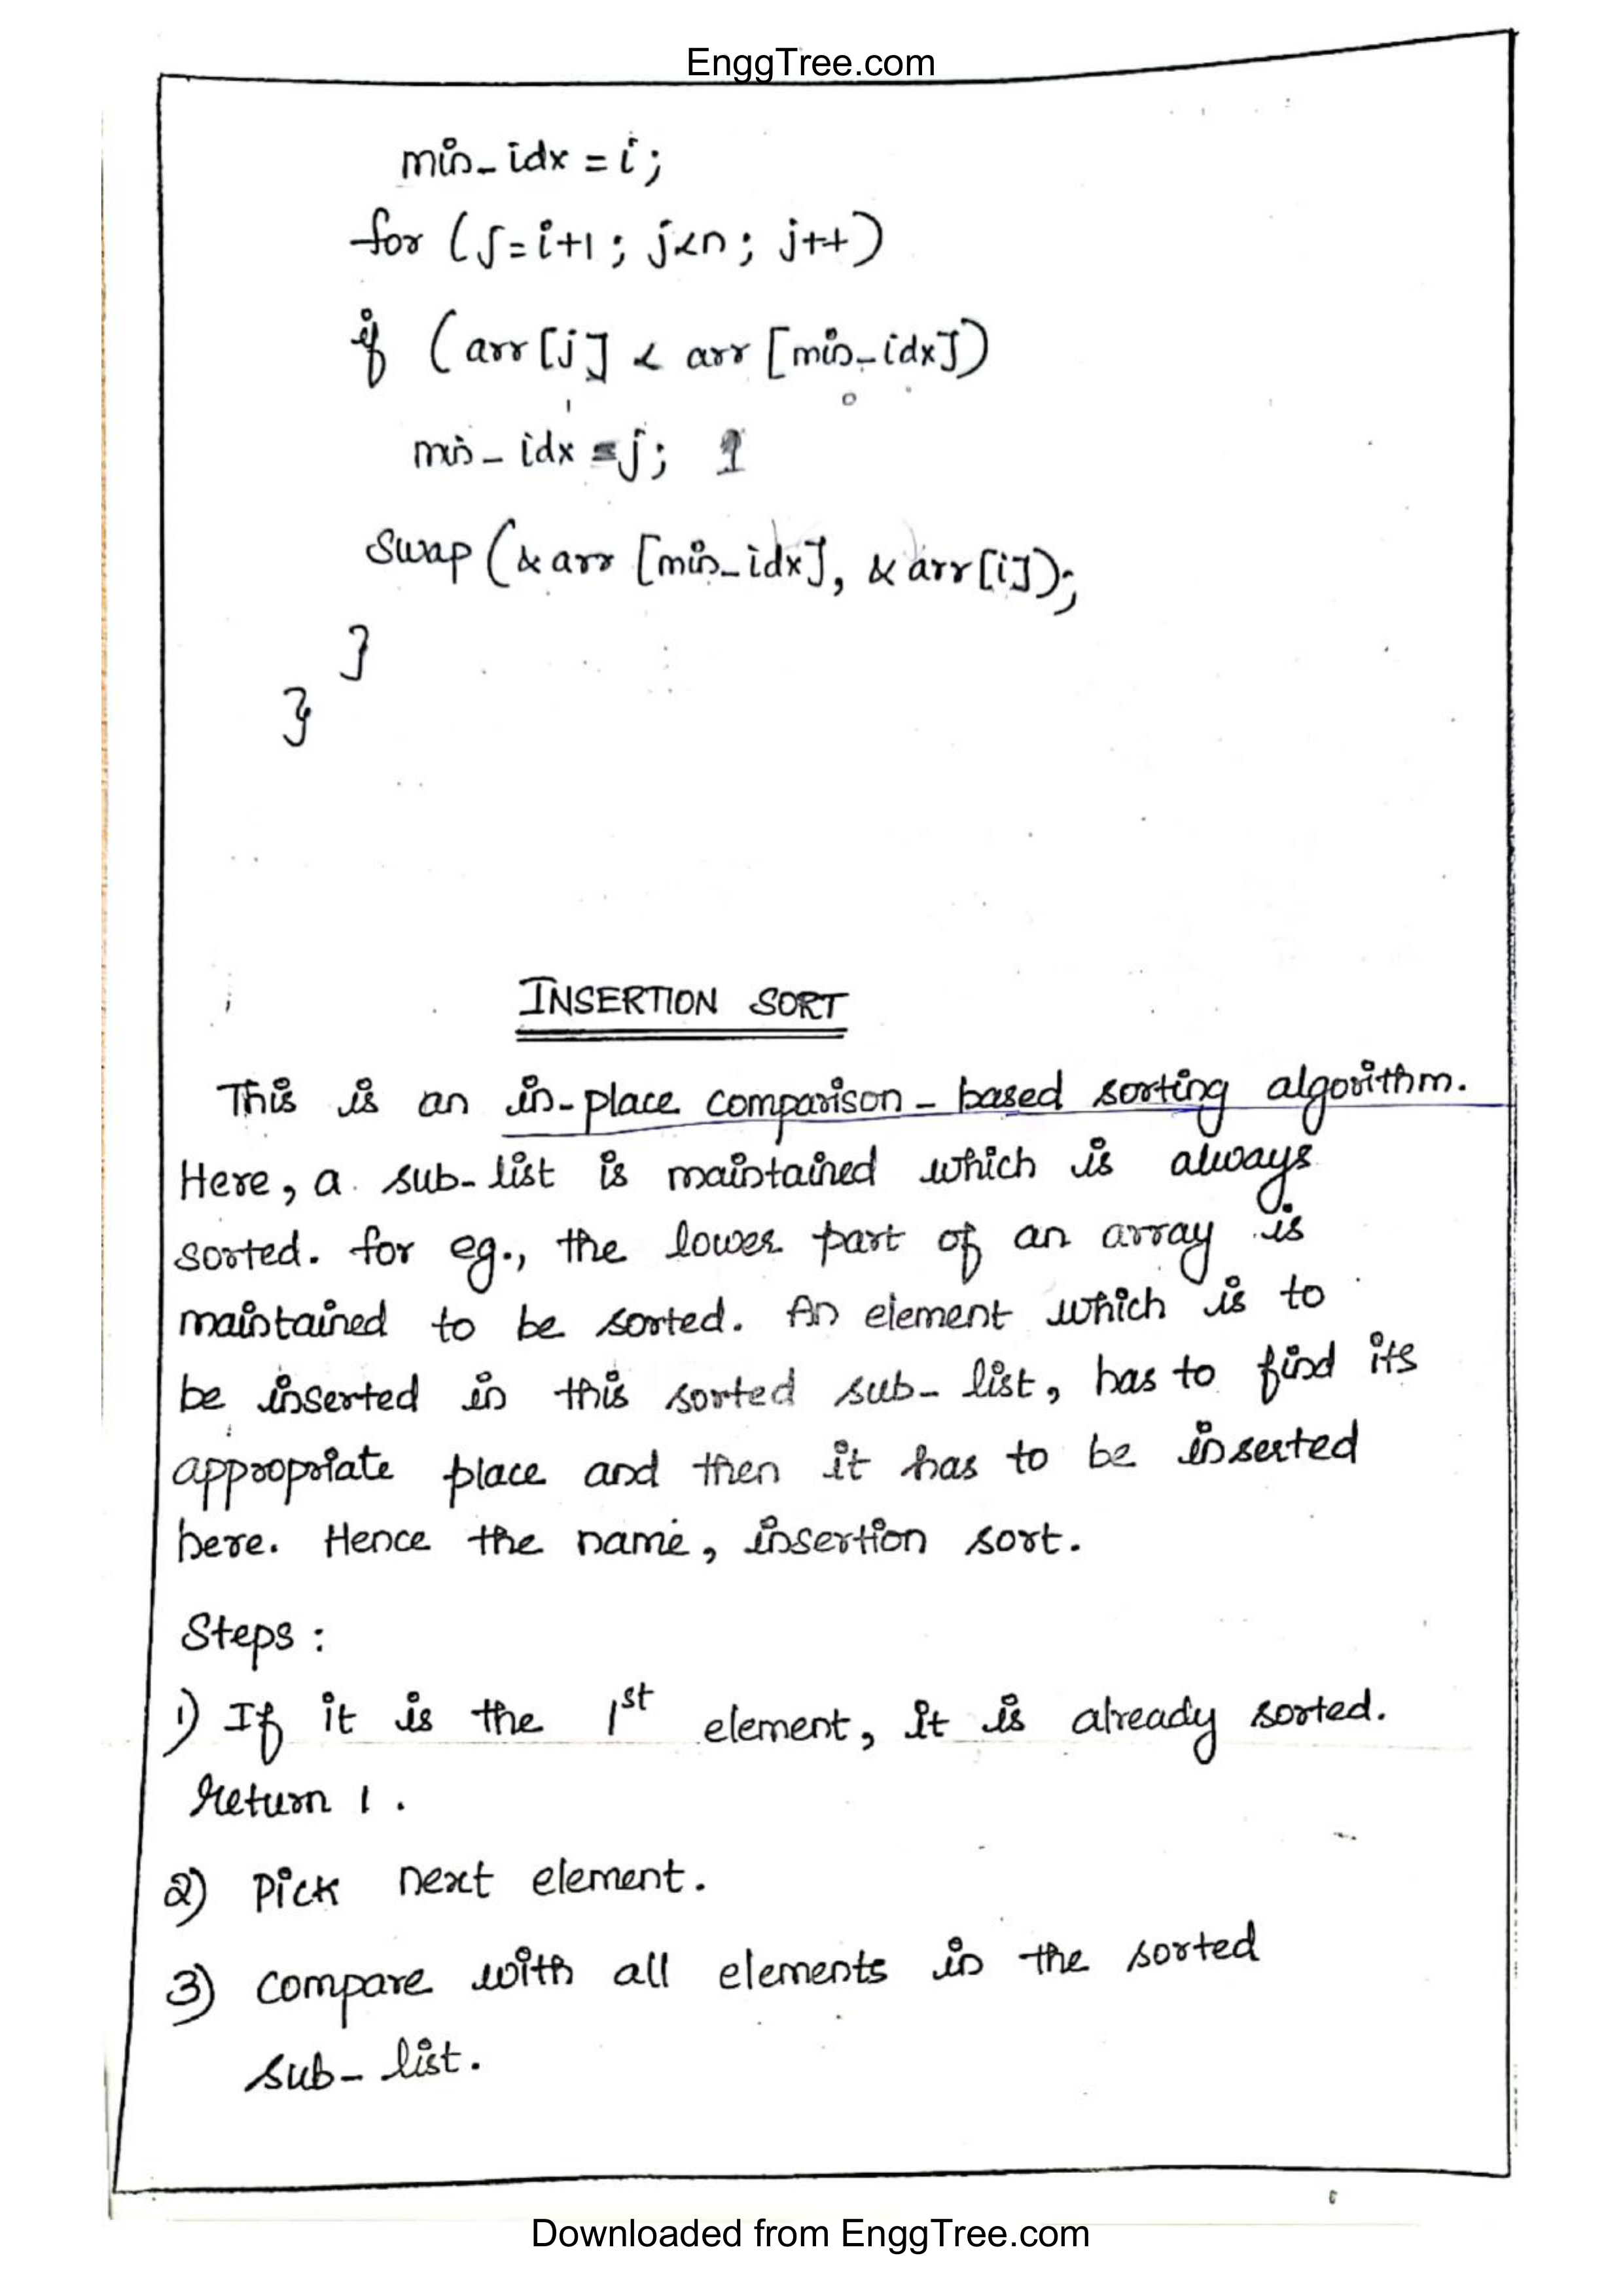 EnggTree.com
min_idx = i;
for (j=i+1; j<n; j++)
if (arr[j] < arr[min_idx])
min_idx = j;
swap(&arr[min_idx], &arr[i]);
}
}
INSERTION SORT
This is an in-place comparison-based sorting algorithm.
Here, a sub-list is maintained which is always
sorted. for eg., the lower part of an array is
maintained to be sorted. An element which is to
be inserted in this sorted sub-list, has to find its
appropriate place and then it has to be inserted
here. Hence the name, insertion sort.
Steps:
1) If it is the 1st element, it is already sorted.
Return 1.
2) Pick next element.
3) Compare with all elements in the sorted
sub-list.
Downloaded from EnggTree.com